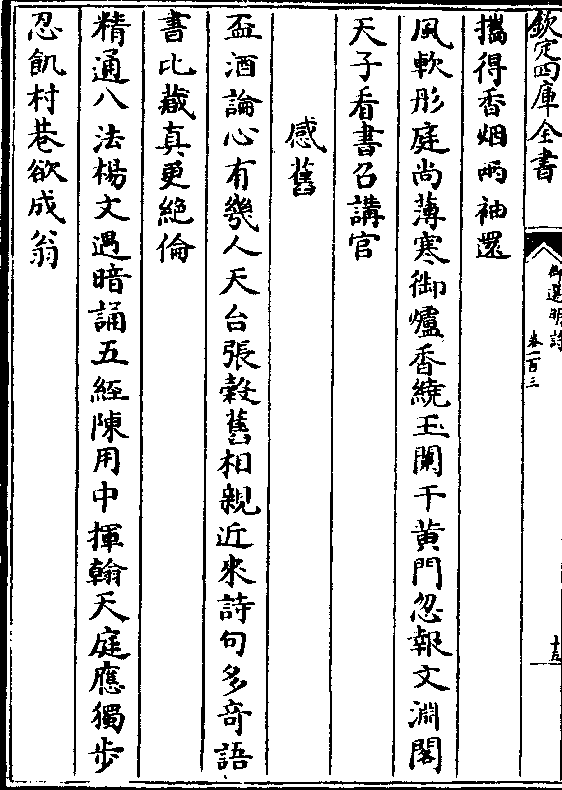 欽定四庫全書
御選明詩
卷一百三
十五
攜得香烟兩袖還
風軟彤庭尚薄寒御爐香繞玉闌干黄門忽報文淵閣
天子看書召講官
感舊
盃酒論心有幾人天台張榖舊相親近來詩句多奇語
書比藏真更絶倫
精通八法楊文遇暗誦五經陳用中揮翰天庭應獨步
忍飢村巷欲成翁